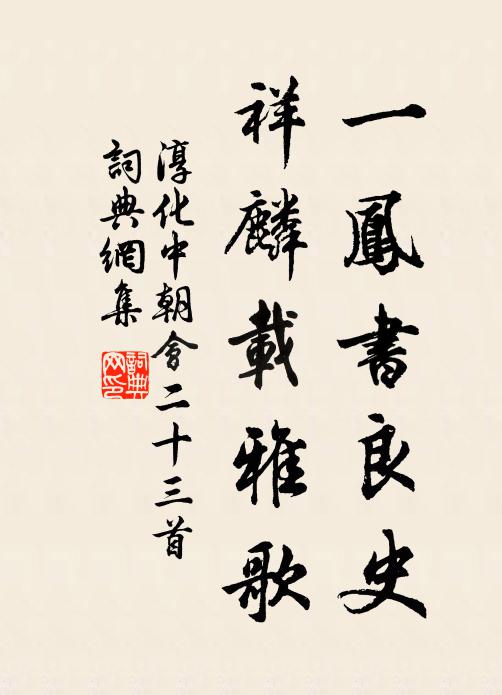 一鳳書良史
祥麟載雅歌
淳化中朝會二十三首
詞典網集
詞典网印